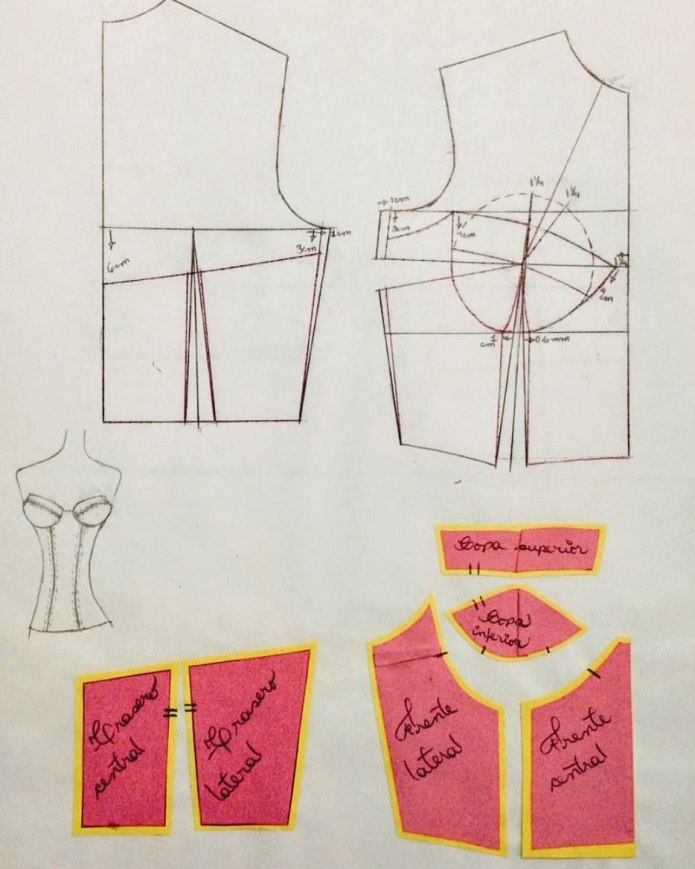 1cm
3cm
6cm
→1cm
3cm
4cm
1¼
1¼
1¼
2cm
1
cm
0.6mm
Copa superior
Copa
inferior
Trasero
central
Trasero
lateral
Frente
lateral
Frente
central